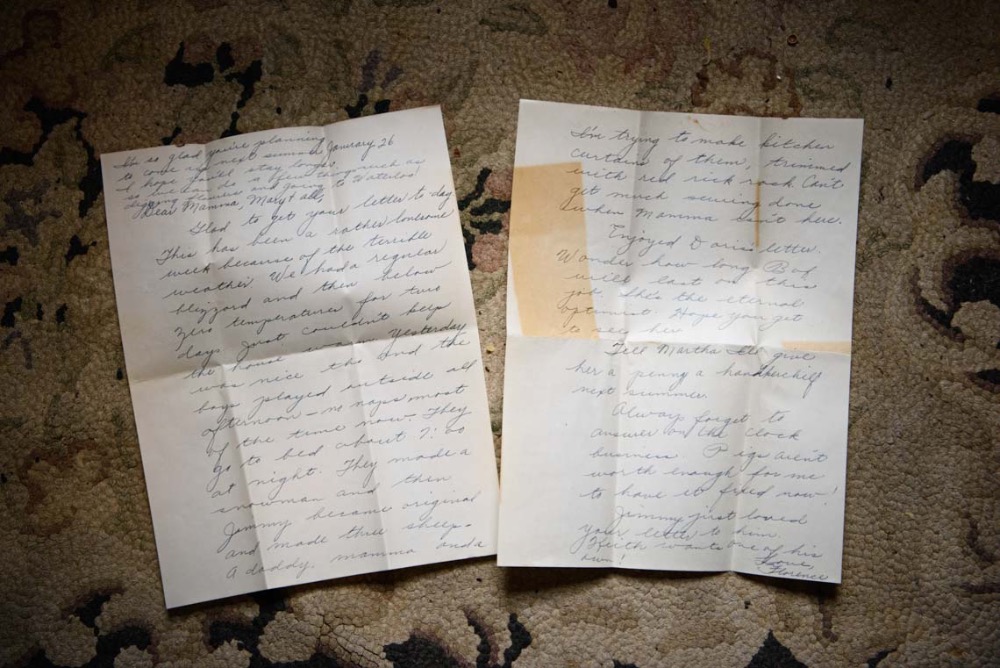 I'm so glad you're planning
to come up next summer
I hope you'll stay longer
so we can do a few things such as
digging flowers and going to Waterloo!
January 26
Dear Mamma, Mary & all,
Glad to get your letter to-day
This has been a rather lonesome
week because of the terrible
weather We had a regular
blizzard and then below
zero temperatures for two
days just couldn't keep
the house warm Yesterday
was nice tho and the
boys played outside all
afternoon – no naps most
of the time now – They
go to bed about 7:00
at night. They made a
snowman and then
Jimmy became original
and made three sheep –
A daddy, mamma and a
I'm trying to make kitchen
curtains of them, trimmed
with red rick rack Can't
get much sewing done
when Mamma isn't here.
Enjoyed Doris's letter.
Wonder how long Bof
will last on this
job She's the eternal
optomist. Hope you get
to see her
Tell Martha I'll give
her a penny a handkerchief
next summer.
Always forget to
answer on the clock
business. Pigs aren't
worth enough for me
to have it fixed now!
Jimmy just loved
your letter to him.
Keith wants one of his
own!
Love,
Florence